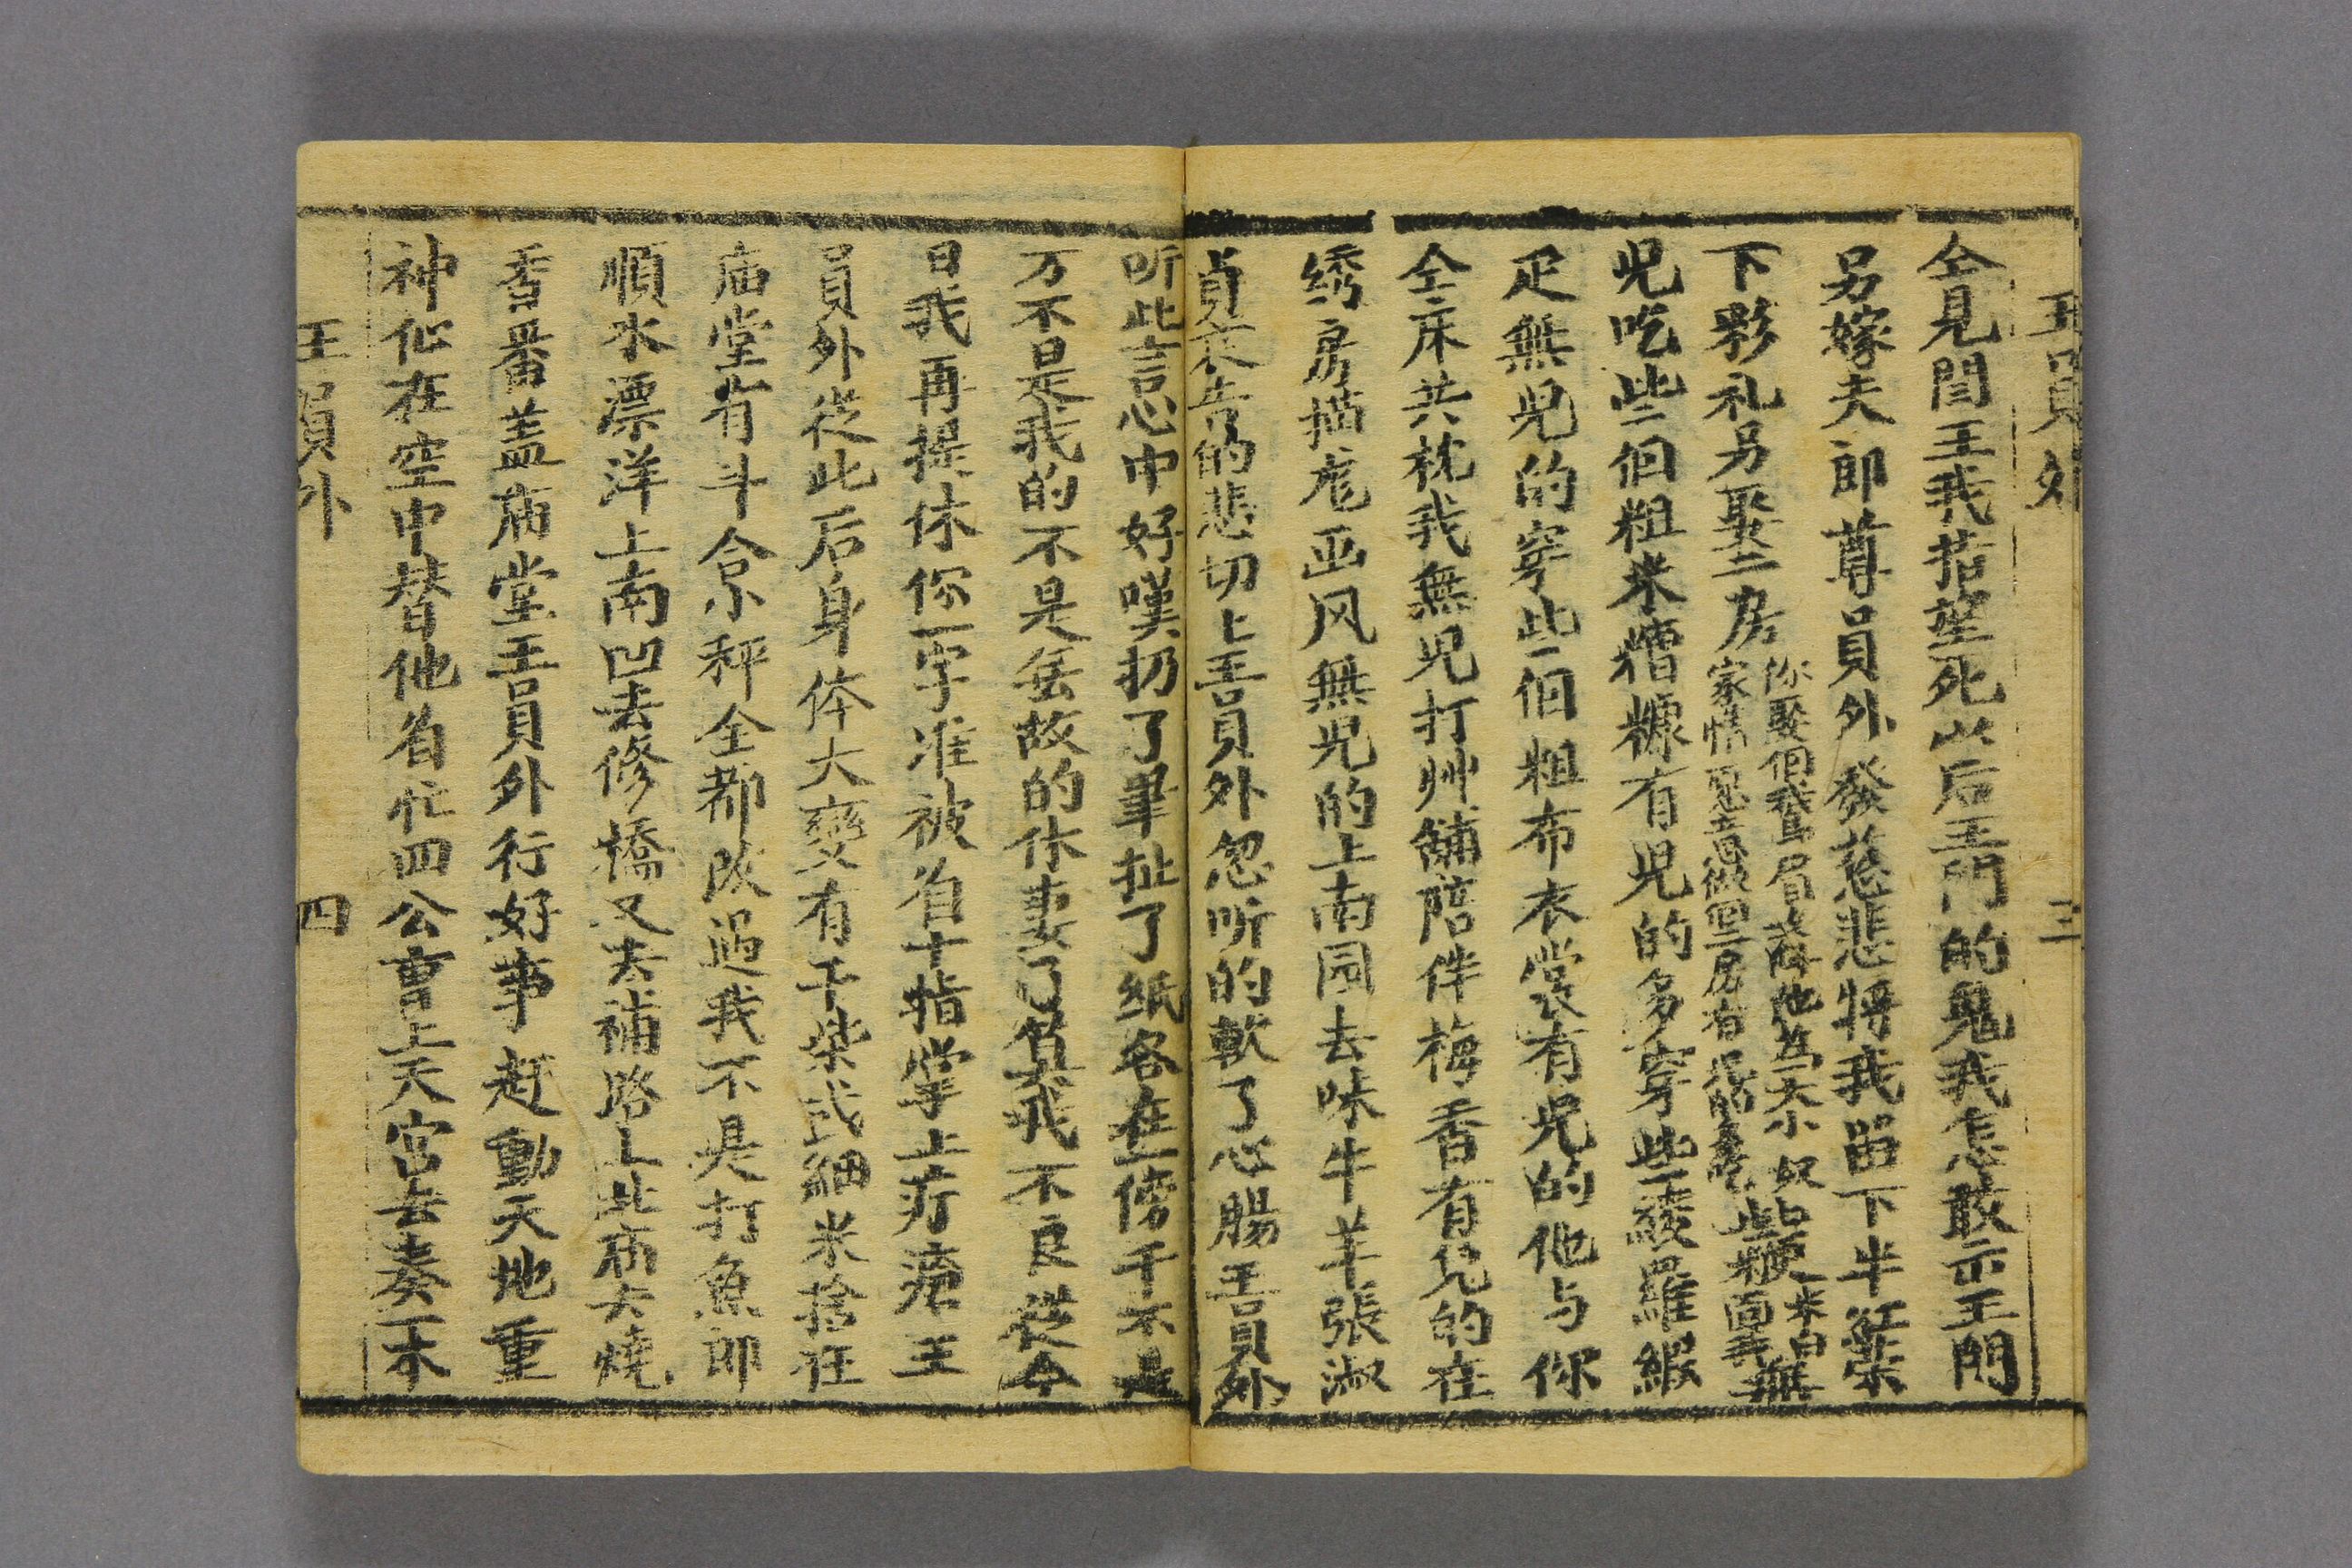 王員外 三
仝見閻王我指望死以后王門的鬼我怎敢示王門
另嫁夫郎尊員外發慈悲將我畄下半紅葉
下彩礼另娶二房你娶個我為眉許他為一大小奴是一家情愿意做個二房右些粳米白面我無
児吃些個粗米糟糠有児的多穿些綾羅緞
疋無児的穿些個粗布衣裳有児的他与你
仝床共枕我無児打艸舖陪伴梅香有児的在
绣房描鳳画风無児的上南园去味牛羊張淑
貞哀告的悲切上王員外忽听的軟了心腸王員外
听此言心中好嘆扔了筆扯了紙名在一傍千不是
万不是我的不是無故的休妻了算我不良從今
日我再提休你一字准被自十指掌上疔瘡王
員外從此后身体大変有干柴或細米捨在
庙堂有斗仓尔秤全都改過我不是打魚郎
順水漂洋上南凹去修橋又去補路上北庙去燒
香番盖庙堂王員外行好事赶動天地重
神仙在空中替他着忙四公曹上天宮去奏一本
王員外 四